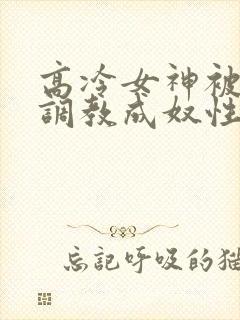 高冷女神被
調教成奴性
忘記呼吸的猫